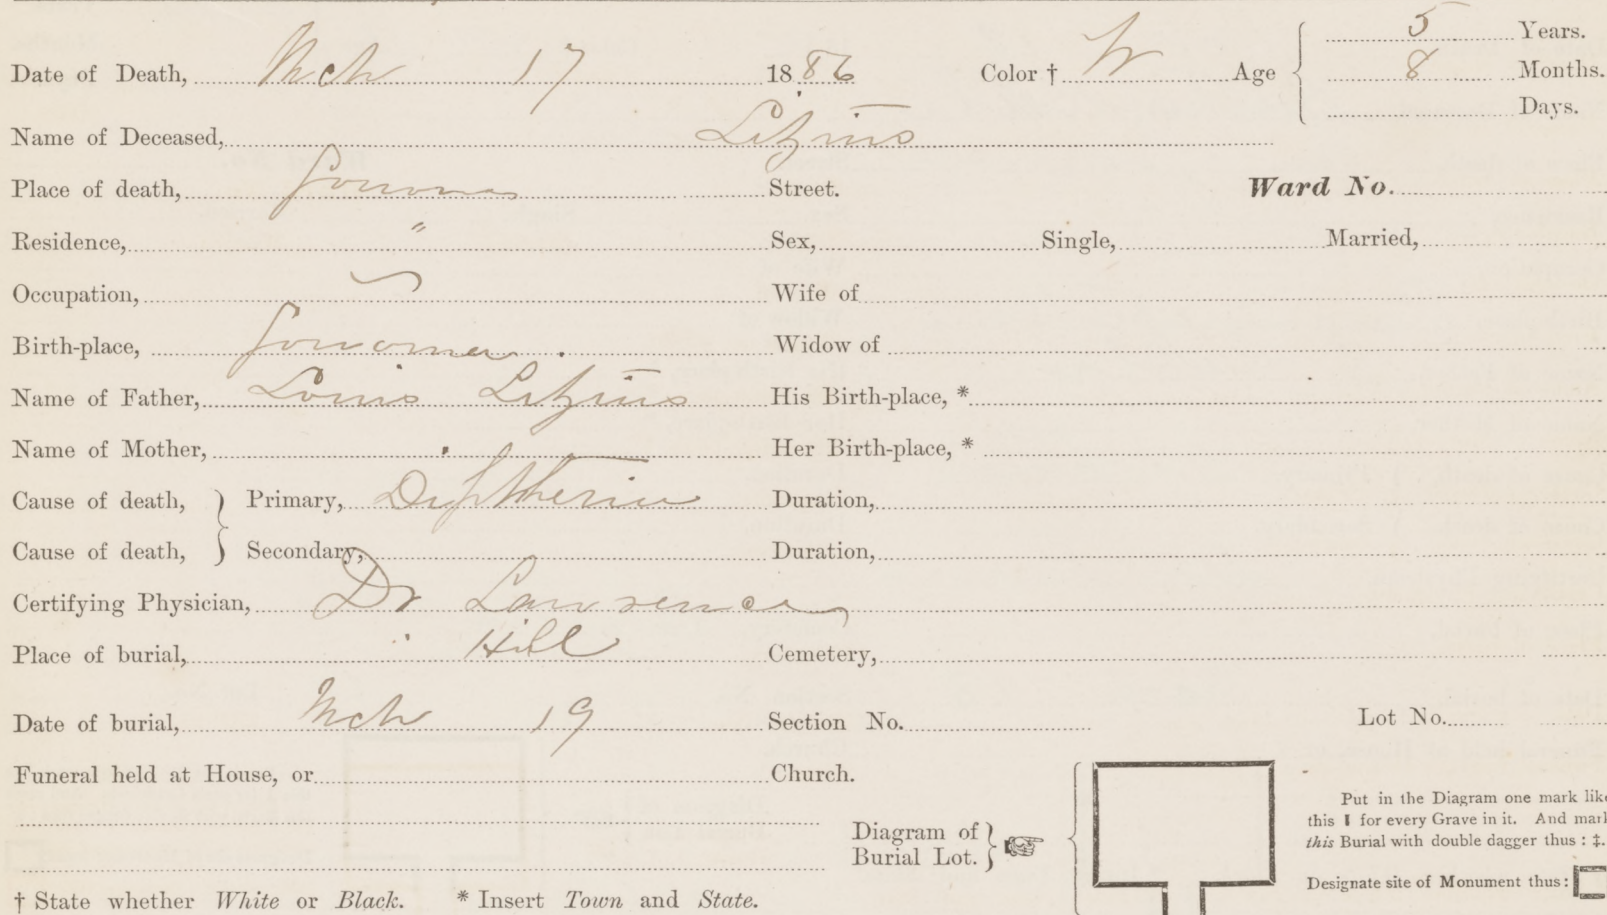 Date of Death, Mch 17 1886 Color † W Age 5 Years.
8 Months.
Days.
Name of Deceased, Litzius
Place of death, Sonoma Street. Ward No.
Residence, " Sex, Single, Married,
Occupation, Wife of
Birth-place, Sonoma Widow of
Name of Father, Louis Litzius His Birth-place, *
Name of Mother, Her Birth-place, *
Cause of death, } Primary, Diptheria Duration,
Cause of death, } Secondary, Duration,
Certifying Physician, Dr Lawrence
Place of burial, Hill Cemetery,
Date of burial, Mch 19 Section No. Lot No.
Funeral held at House, or Church.
Diagram of
Burial Lot.
Put in the Diagram one mark like
this ▮ for every Grave in it. And mark
this Burial with double dagger thus : ‡.
Designate site of Monument thus :
† State whether White or Black. * Insert Town and State.